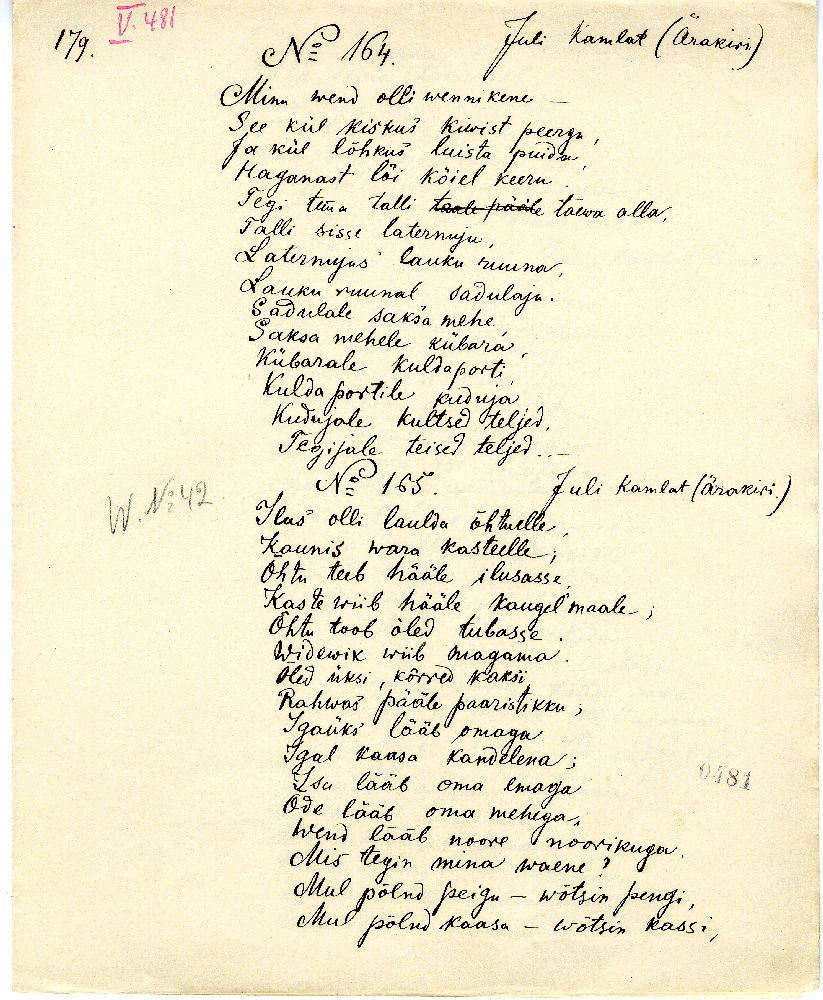 179.
V. 481
Nº 164.
Juli Kamlat (Ärakiri)
Minu wend olli wennikene —
See kül kiskus kiwist peergu,
Ja kül lõhkus luista puidu,
Haganast lõi kõiel keeru.
Tegi tema talli taale pääle taewa alla,
Talli sisse laternuju,
Laternujus lauku ruuna,
Lauku ruunal sadulaju.
Sadulale saksa mehe,
Saksa mehele kübara,
Kübarale kuldaporti,
Kulda portile puduja
Kudujale kultsed teljed,
Tegijale teised teljed. —
Nº 165.
Juli Kamlat (Ärakiri.)
W. Nº 42
Ilus olli laulda õhtuelle,
Kaunis wara kasteelle;
Õhtu teeb hääle ilusasse,
Kaste wiib hääle kaugel maale;
Õhtu toob õled tubasse.
Widewik wiib magama.
Õled üksi, kõrred kaksi,
Rahwas pääle paaristikku;
Igaüks lääb omaga
Igal kaasa kandelena;
Isa lääb oma emaga
Õde lääb oma mehega,
Wend lääb noore noorikuga.
Mis tegin mina waene?
Mul põlnd peigu — wõtsin pengi,
Mul põlnd kaasa — wõtsin kassi,
0481